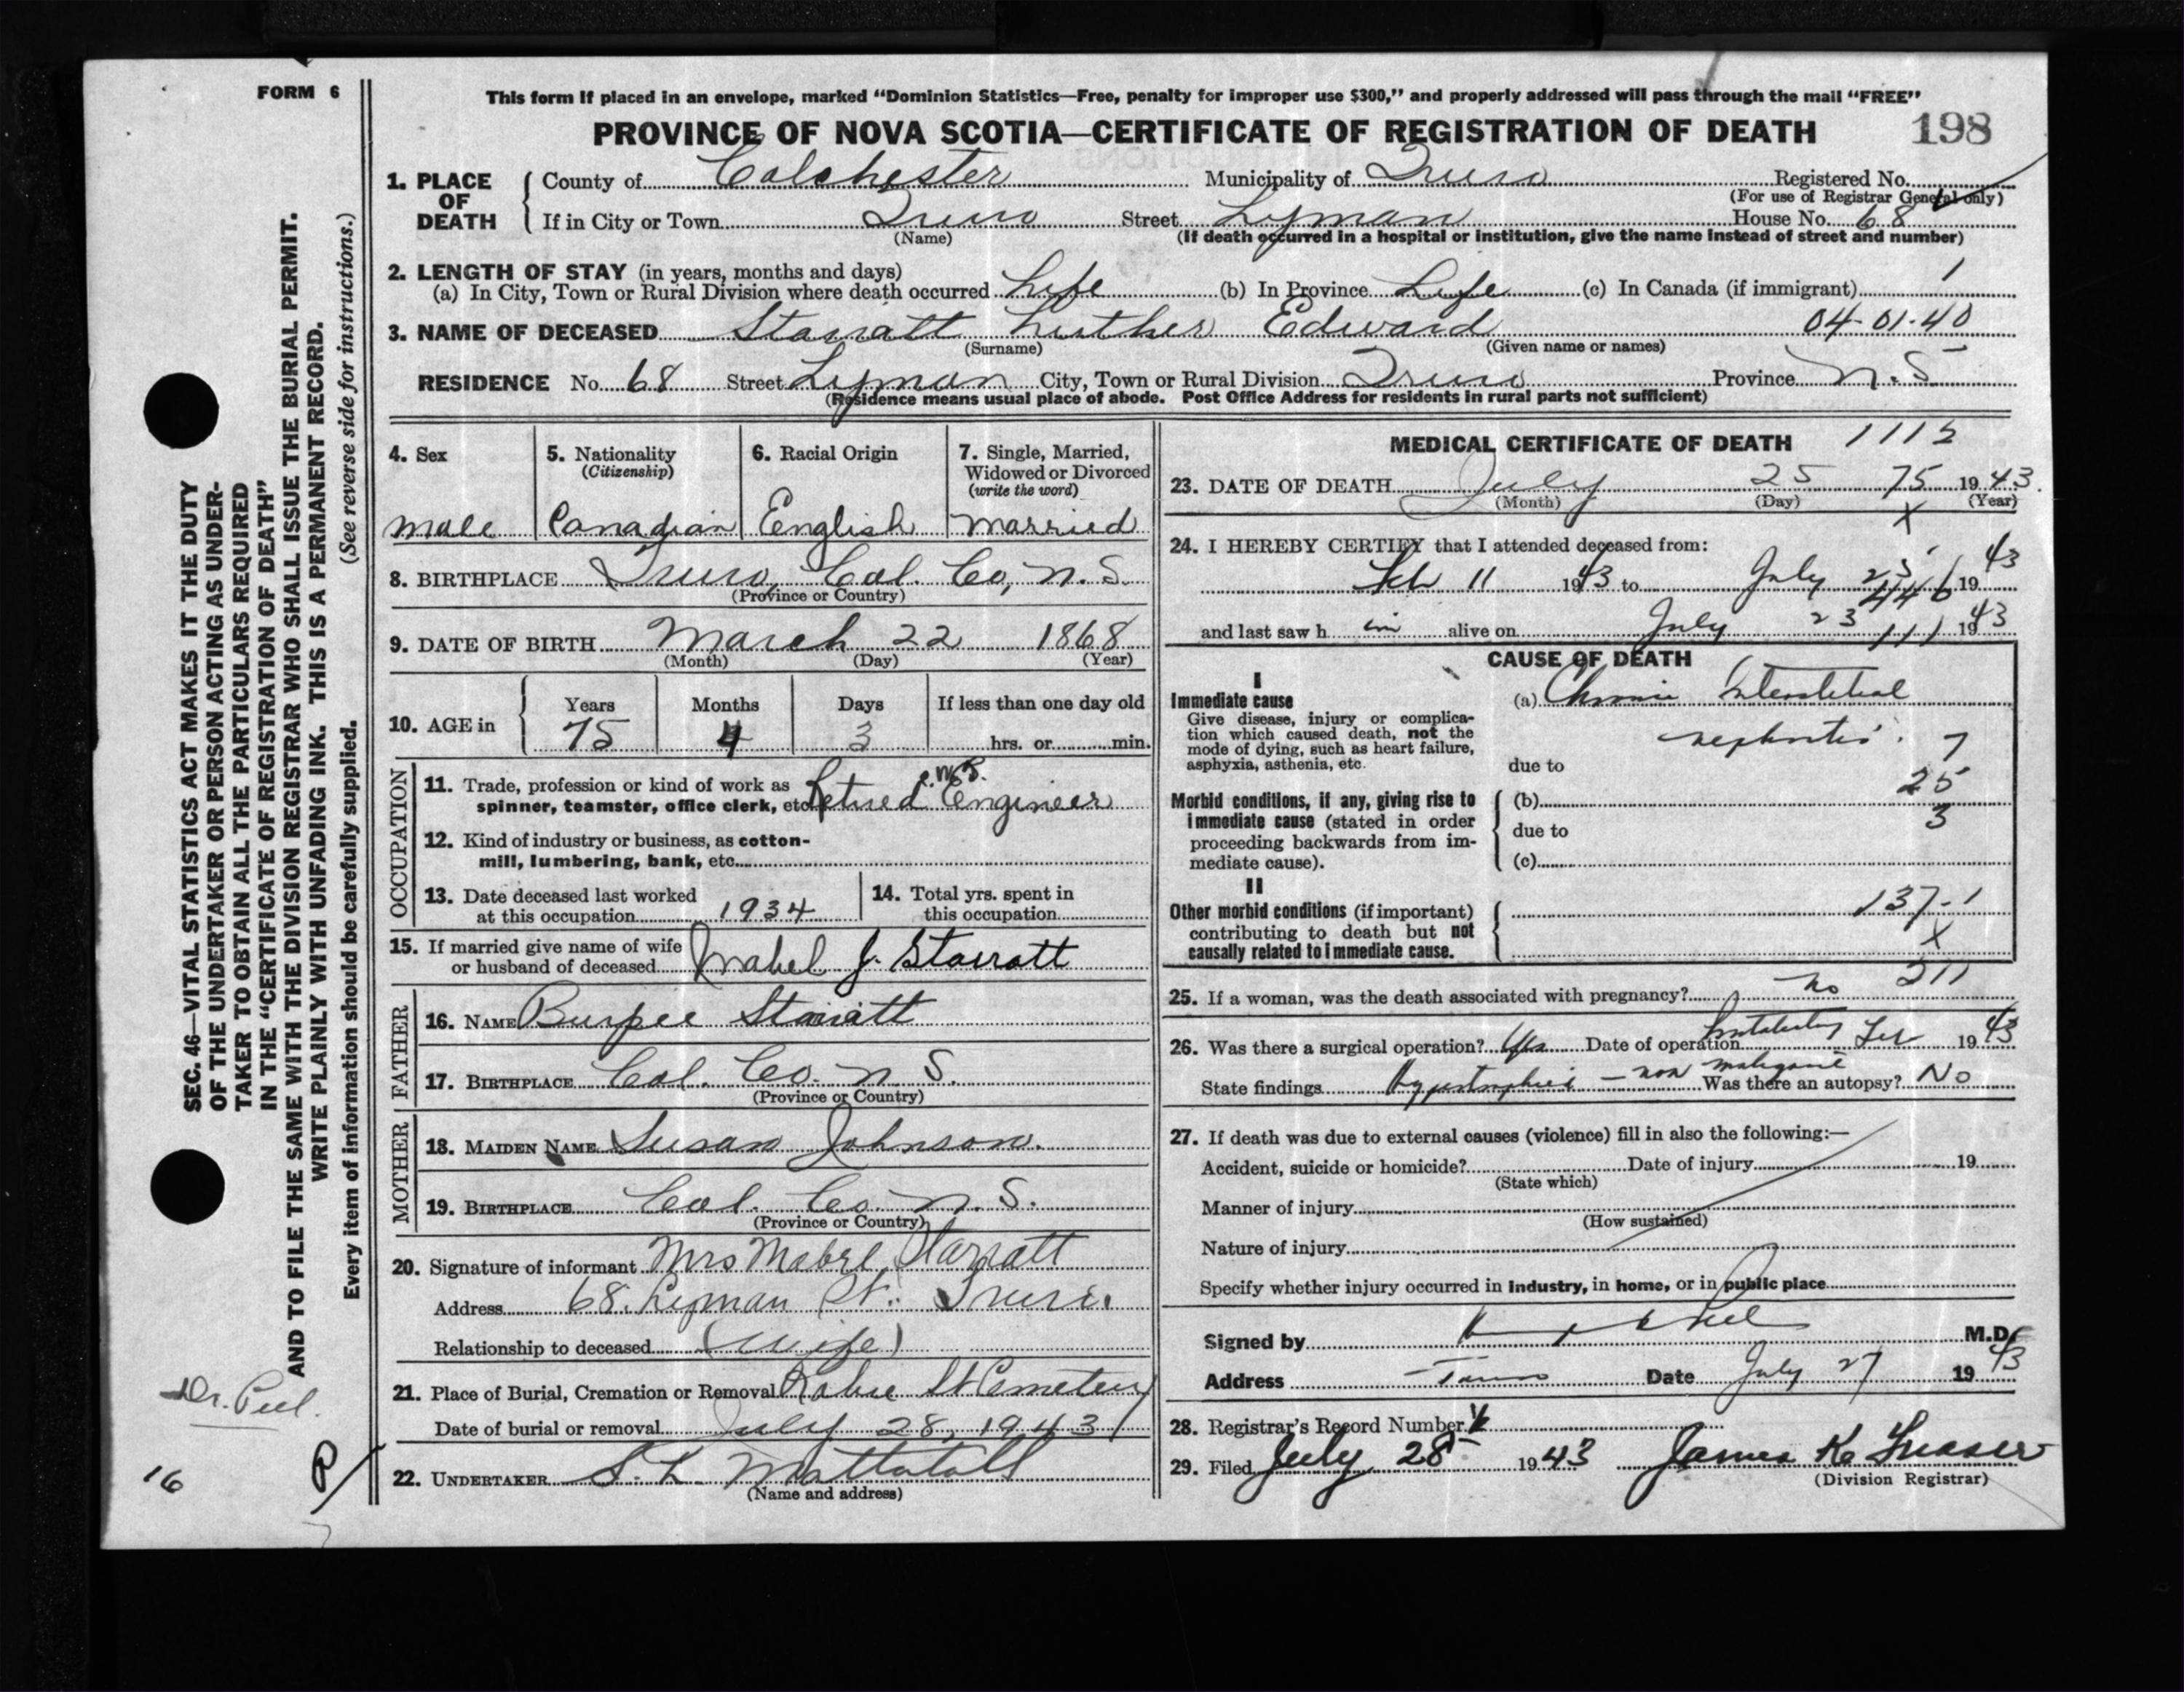 FORM 6
This form if placed in an envelope, marked “Dominion Statistics—Free, penalty for improper use $300,” and properly addressed will pass through the mail “FREE”
PROVINCE OF NOVA SCOTIA—CERTIFICATE OF REGISTRATION OF DEATH 198
1. PLACE OF DEATH County of Colchester Municipality of Truro Registered No.
(For use of Registrar General only)
If in City or Town Truro Street Lyman House No. 68
(Name) (If death occurred in a hospital or institution, give the name instead of street and number)
2. LENGTH OF STAY (in years, months and days)
(a) In City, Town or Rural Division where death occurred Life (b) In Province Life (c) In Canada (if immigrant)
3. NAME OF DECEASED Starratt Luther Edward 04-01-40
(Surname) (Given name or names)
RESIDENCE No. 68 Street Lyman City, Town or Rural Division Truro Province N.S.
(Residence means usual place of abode. Post Office Address for residents in rural parts not sufficient)
4. Sex
male
5. Nationality
(Citizenship)
Canadian
6. Racial Origin
English
7. Single, Married,
Widowed or Divorced
(write the word)
married
8. BIRTHPLACE Truro, Col. Co, N.S.
(Province or Country)
9. DATE OF BIRTH March 22 1868
(Month) (Day) (Year)
10. AGE in Years Months Days If less than one day old
75 4 3 hrs. or min.
OCCUPATION
11. Trade, profession or kind of work as
spinner, teamster, office clerk, etc. Retired Engineer
12. Kind of industry or business, as cotton-
mill, lumbering, bank, etc.
13. Date deceased last worked
at this occupation 1934
14. Total yrs. spent in
this occupation
15. If married give name of wife
or husband of deceased Mabel J. Starratt
FATHER
16. NAME Burpee Starratt
17. BIRTHPLACE Col. Co. N.S.
(Province or Country)
MOTHER
18. MAIDEN NAME Susan Johnson.
19. BIRTHPLACE Col. Co. N.S.
(Province or Country)
20. Signature of informant Mrs Mabel Starratt
Address 68 Lyman St. Truro.
Relationship to deceased (wife)
21. Place of Burial, Cremation or Removal Robie St Cemetery
Date of burial or removal July 28, 1943
22. UNDERTAKER S. L. Mattatall
(Name and address)
MEDICAL CERTIFICATE OF DEATH 1112
23. DATE OF DEATH July 25 75 1943.
(Month) (Day) (Year)
X
24. I HEREBY CERTIFY that I attended deceased from:
Feb 11 1943 to July 25 1943
446
and last saw him alive on July 23 1943
111
CAUSE OF DEATH
I
Immediate cause
Give disease, injury or complica-
tion which caused death, not the
mode of dying, such as heart failure,
asphyxia, asthenia, etc.
(a) Chronic Interstitial
nephritis. 7
due to
25
Morbid conditions, if any, giving rise to
immediate cause (stated in order
proceeding backwards from im-
mediate cause).
(b)
due to 3
(c)
II
Other morbid conditions (if important)
contributing to death but not
causally related to immediate cause.
137-1
X
25. If a woman, was the death associated with pregnancy? no 211
26. Was there a surgical operation? Yes Date of operation Feb 1943
State findings Hypertrophied - non malignant Was there an autopsy? No
27. If death was due to external causes (violence) fill in also the following:—
Accident, suicide or homicide? Date of injury 19
(State which)
Manner of injury
(How sustained)
Nature of injury
Specify whether injury occurred in industry, in home, or in public place
Signed by M.D.
Address Truro Date July 27 1943
28. Registrar's Record Number
29. Filed July 28 1943 James K. Fraser
(Division Registrar)
SEC. 46—VITAL STATISTICS ACT MAKES IT THE DUTY
OF THE UNDERTAKER OR PERSON ACTING AS UNDER-
TAKER TO OBTAIN ALL THE PARTICULARS REQUIRED
IN THE “CERTIFICATE OF REGISTRATION OF DEATH”
AND TO FILE THE SAME WITH THE DIVISION REGISTRAR WHO SHALL ISSUE THE BURIAL PERMIT.
WRITE PLAINLY WITH UNFADING INK. THIS IS A PERMANENT RECORD.
Every item of information should be carefully supplied. (See reverse side for instructions.)
Dr. Peel.
16